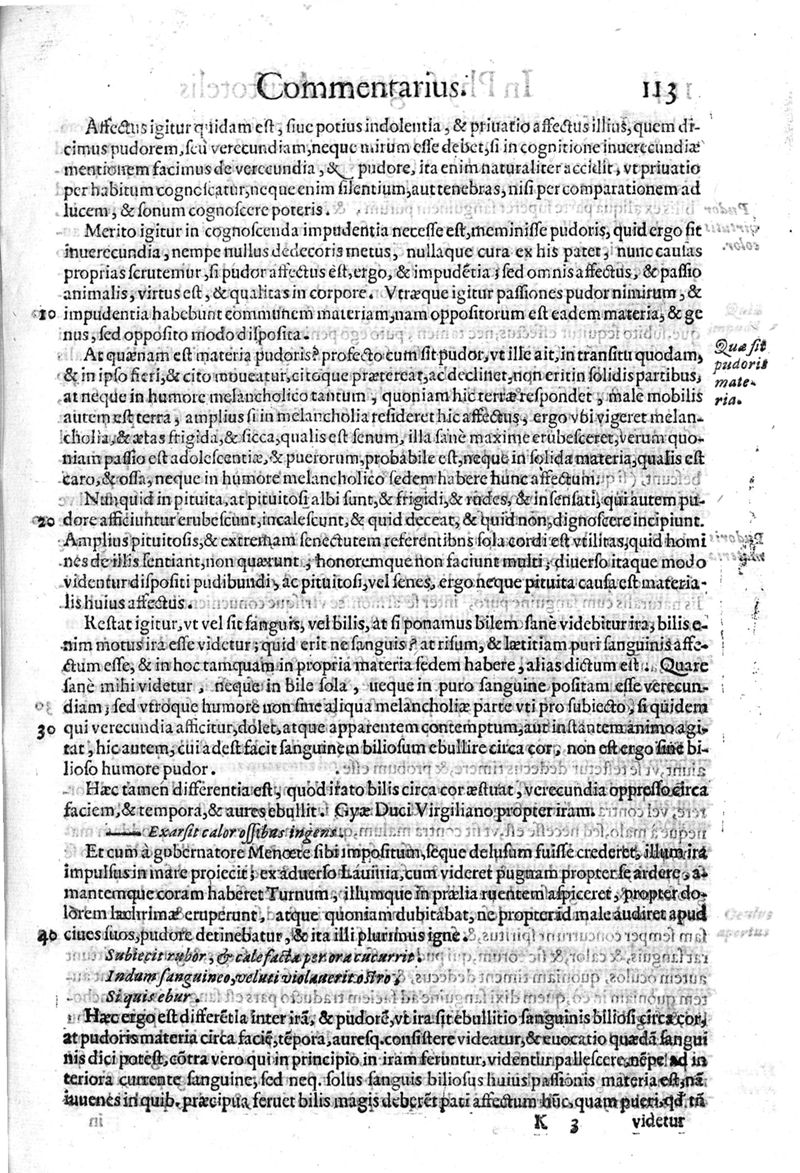 Commentarius. 113
Affectus igitur quidam est, siue potius indolentia, & priuatio affectus illius, quem di-
cimus pudorem, seu verecundiam, neque mirum esse debet, si in cognitione inuerecundiæ
mentionem facimus de verecundia, & pudore, ita enim naturaliter accidit, vt priuatio
per habitum cognoscatur, neque enim silentium, aut tenebras, nisi per comparationem ad
lucem, & sonum cognoscere poteris.
Merito igitur in cognoscenda impudentia necesse est, meminisse pudoris, quid ergo sit
inuerecundia, nempe nullus dedecoris metus, nullaque cura ex his patet, nunc causas
proprias scrutemur, si pudor affectus est, ergo, & impudẽtia; sed omnis affectus, & passio
animalis, virtus est, & qualitas in corpore. Vtræque igitur passiones pudor nimirum, &
10 impudentia habebunt communem materiam, nam oppositorum est eadem materia, & ge
nus, sed opposito modo disposita.
At quænam est materia pudoris? profecto cum sit pudor, vt ille ait, in transitu quodam,
& in ipso fieri, & cito moueatur, citoque prætereat, ac declinet, non erit in solidis partibus,
at neque in humore melancholico tantum, quoniam hic terræ respondet, male mobilis
autem est terra, amplius si in melancholia resideret hic affectus, ergo vbi vigeret melan-
cholia, & ætas frigida, & sicca, qualis est senum, illa sanè maxime erubesceret, verum quo-
niam passio est adolescentiæ, & puerorum, probabile est, neque in solida materia, qualis est
caro, & ossa, neque in humore melancholico sedem habere hunc affectum.
Quæ sit
pudoris
mate-
ria.
Nunquid in pituita, at pituitosi albi sunt, & frigidi, & rudes, & insensati, qui autem pu-
20 dore afficiuntur erubescunt, incalescunt, & quid deceat, & quid non, dignoscere incipiunt.
Amplius pituitosis, & extremam senectutem referentibns sola cordi est vtilitas, quid homi
nes de illis sentiant, non quærunt, honoremque non faciunt multi, diuerso itaque modo
videntur dispositi pudibundi, ac pituitosi, vel senes, ergo neque pituita causa est materia-
lis huius affectus.
Restat igitur, vt vel sit sanguis, vel bilis, at si ponamus bilem sanè videbitur ira, bilis e-
nim motus ira esse videtur; quid erit ne sanguis? at risum, & lætitiam puri sanguinis affe-
ctum esse, & in hoc tamquam in propria materia sedem habere, alias dictum est. Quare
sanè mihi videtur, neque in bile sola, ueque in puro sanguine positam esse verecun-
diam; sed vtroque humore non sine aliqua melancholiæ parte vti pro subiecto, si quidem
30 qui verecundia afficitur, dolet, atque apparentem contemptum, aut instantem animo agi-
tat, hic autem, cui adest facit sanguinem biliosum ebullire circa cor, non est ergo sine bi-
lioso humore pudor.
Hæc tamen differentia est, quod irato bilis circa cor æstuat, verecundia oppresso circa
faciem, & tempora, & aures ebullit. Gyæ Duci Virgiliano propter iram.
Exarsit calor ossibus ingens.
Et cum à gubernatore Menœte sibi impositum, seque delusum fuisse crederet, illum ira
impulsus in mare proiecit; ex aduerso Lauinia, cum videret pugnam propter se ardere, a-
mantemque coram haberet Turnum, illumque in prælia ruentem aspiceret, propter do-
lorem lachrimæ eruperunt, atque quoniam dubitabat, ne propterad male audiret apud
40 ciues suos, pudore detinebatur, & ita illi plurimus igne.
Subiecit rubor, & calefacta per ora cucurrit.
Indum sanguineo, veluti violauerit ostro,
Si quis ebur.
Hæc ergo est differẽtia inter irã, & pudorẽ, vt ira sit ebullitio sanguinis biliosi circa cor,
at pudoris materia circa faciẽ, tẽpora, auresq. consistere videatur, & euocatio quædã sangui
nis dici potest, cõtra vero qui in principio in iram feruntur, videntur pallescere, nẽpe ad in
teriora currente sanguine; sed neq. solus sanguis biliosus huius passionis materia est, nã
iuuenes in quib. præcipua feruet bilis magis deberẽt pati affectum hũc, quam pueri, qđ tñ
K 3 videtur